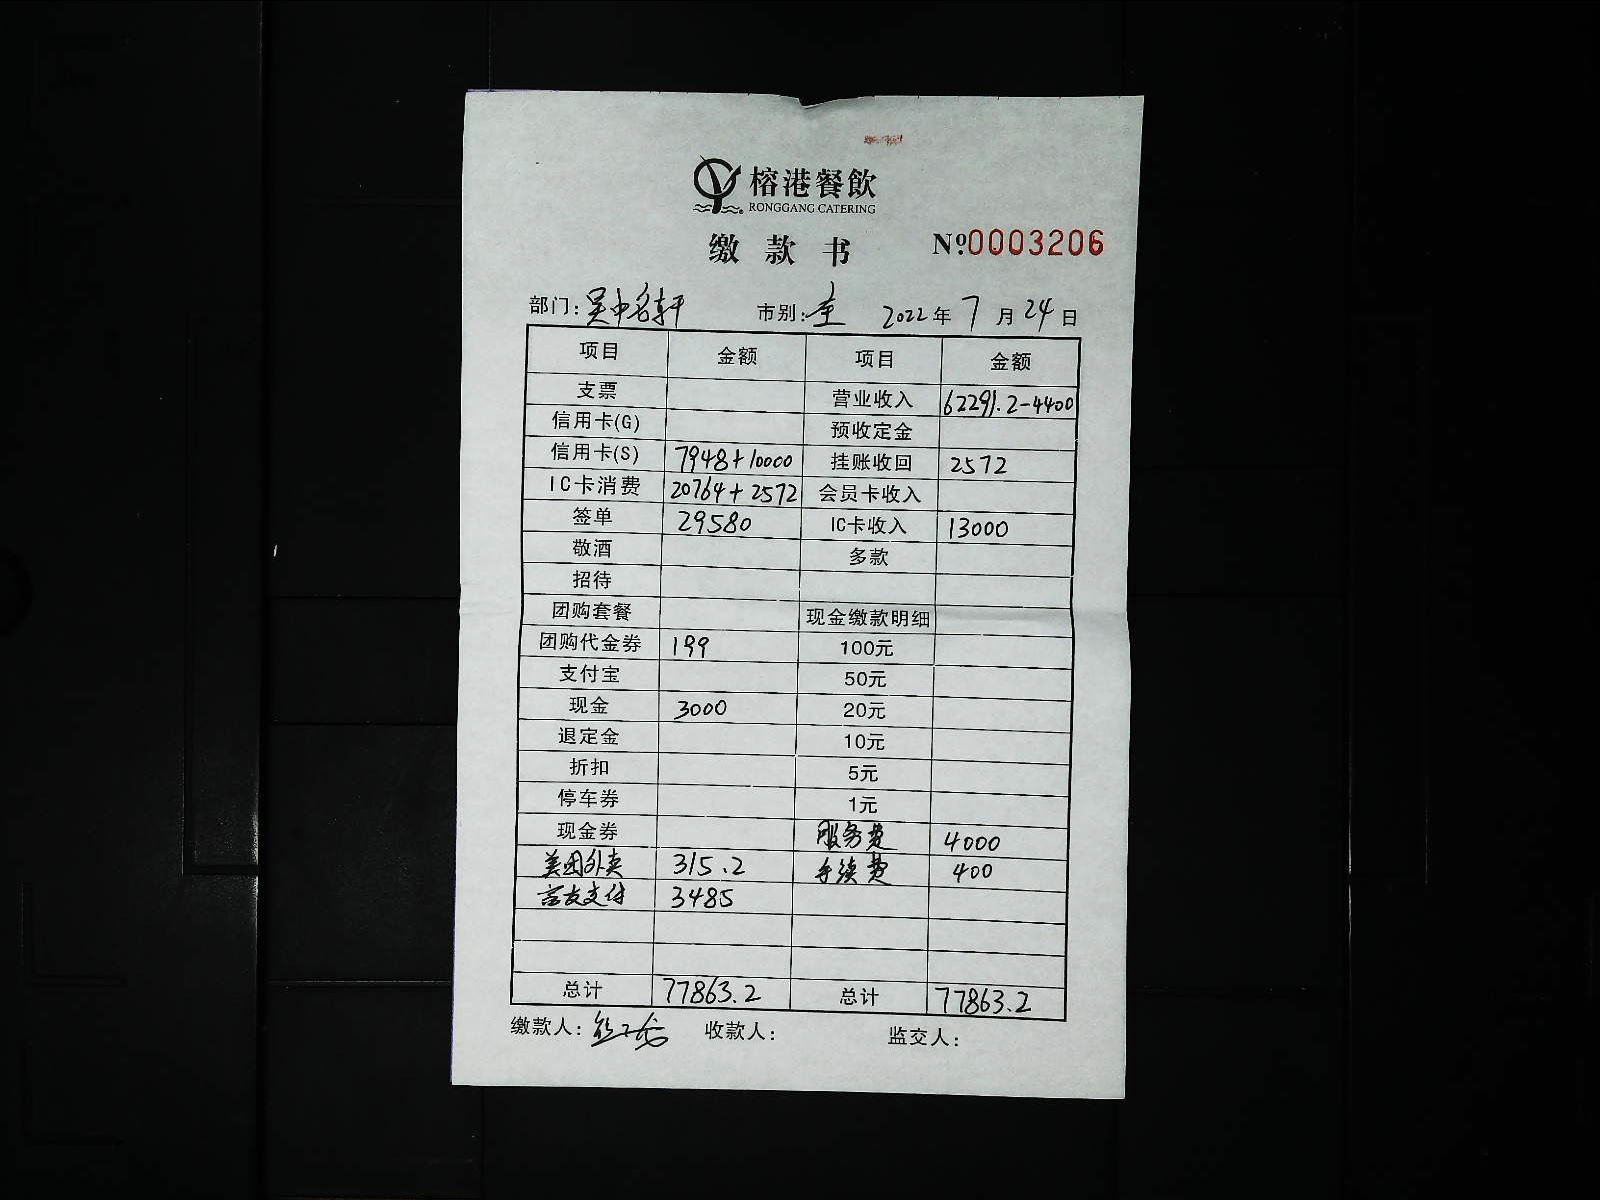 榕港餐飲
RONGGANG CATERING
缴款书 №0003206
部门: 吴中名轩 市别: 全 2022年7月24日
项目 金额 项目 金额
支票 营业收入 62291.2-4400
信用卡(G) 预收定金
信用卡(S) 7948+10000 挂账收回 2572
IC卡消费 20764+2572 会员卡收入
签单 29580 IC卡收入 13000
敬酒 多款
招待
团购套餐 现金缴款明细
团购代金券 199 100元
支付宝 50元
现金 3000 20元
退定金 10元
折扣 5元
停车券 1元
现金券 服务费 4000
美团外卖 315.2 手续费 400
支付 3485
总计 77863.2 总计 77863.2
缴款人: 收款人: 监交人: